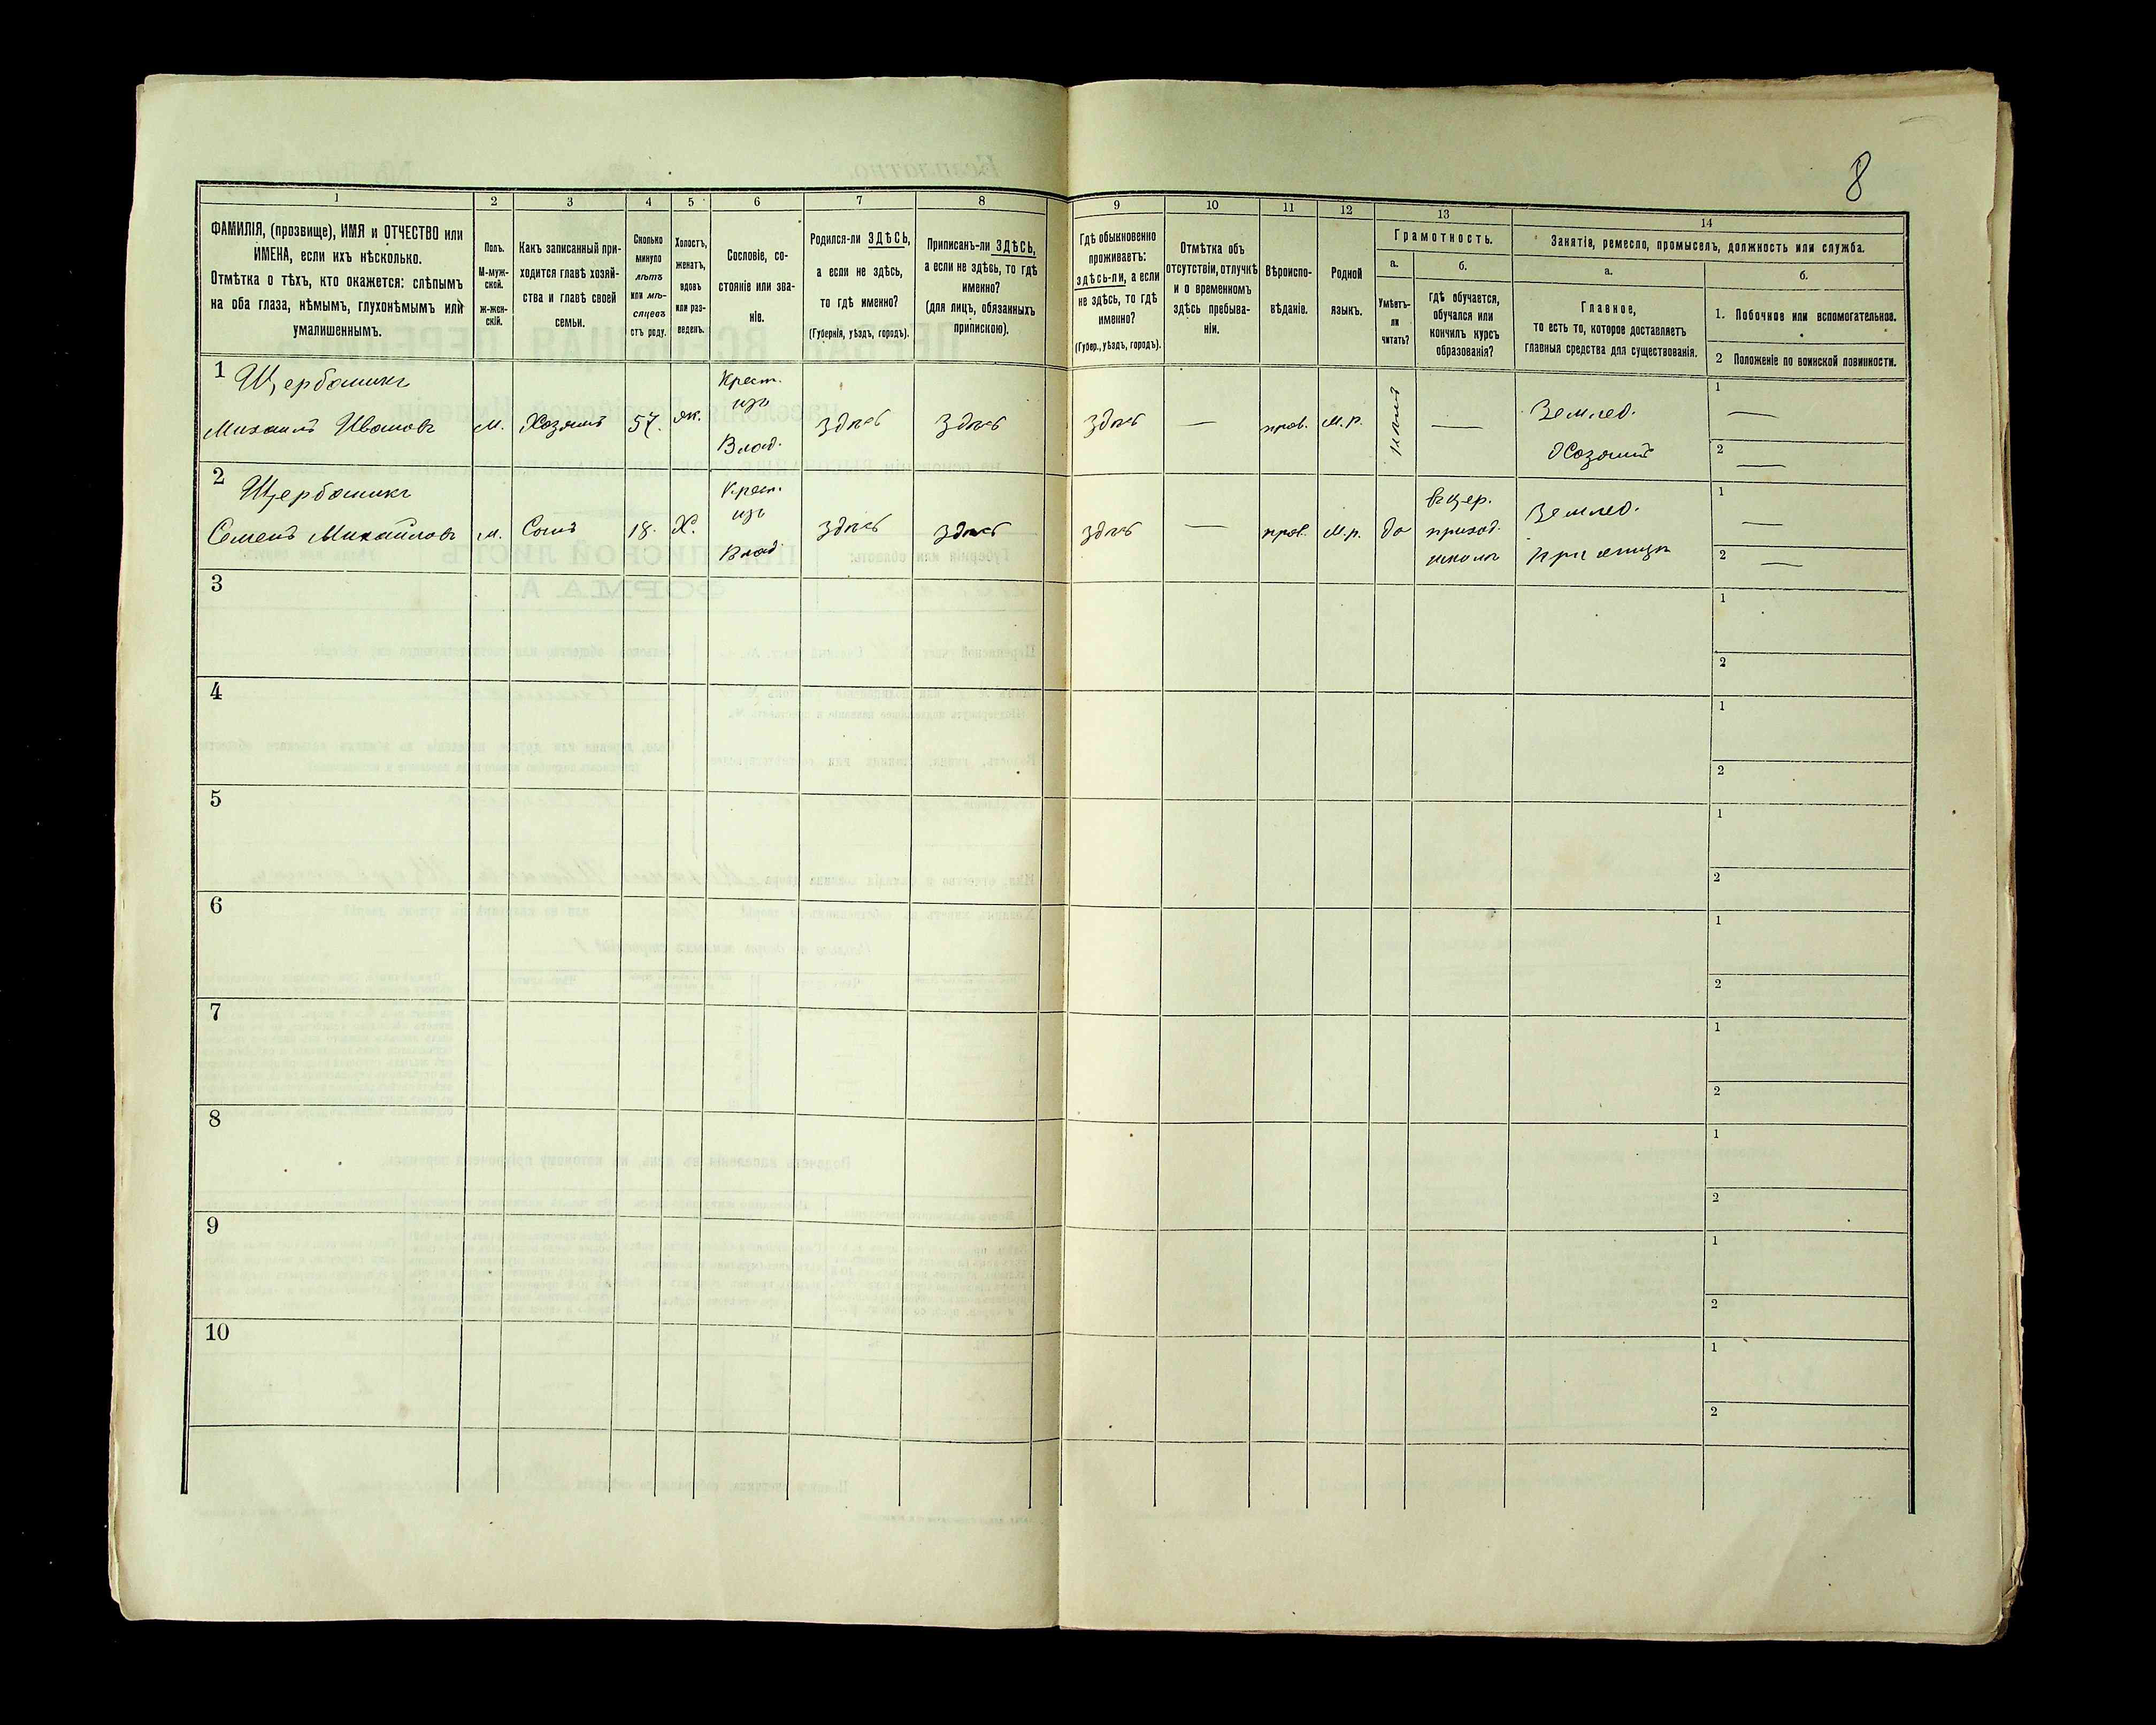 8
1
2
3
4
5
6
7
8
9
10
11
12
13
14
ФАМИЛІЯ, (прозвище), ИМЯ и ОТЧЕСТВО или
ИМЕНА, если ихъ нѣсколько.
Отмѣтка о тѣхъ, кто окажется: слѣпымъ
на оба глаза, нѣмымъ, глухонѣмымъ или
умалишеннымъ.
Полъ.
М-муж-
ской.
ж-жен-
скій.
Какъ записанный при-
ходится главѣ хозяй-
ства и главѣ своей
семьи.
Сколько
минуло
лѣтъ
или мѣ-
сяцевъ
отъ роду.
Холостъ,
женатъ,
вдовъ
или раз-
веденъ.
Сословіе, со-
стояніе или зва-
ніе.
Родился-ли ЗДѢСЬ,
а если не здѣсь,
то гдѣ именно?
(Губернія, уѣздъ, городъ).
Приписанъ-ли ЗДѢСЬ,
а если не здѣсь, то гдѣ
именно?
(для лицъ, обязанныхъ
припискою).
Гдѣ обыкновенно
проживаетъ:
здѣсь-ли, а если
не здѣсь, то гдѣ
именно?
(Губер., уѣздъ, городъ).
Отмѣтка объ
отсутствіи, отлучкѣ
и о временномъ
здѣсь пребыва-
ніи.
Вѣроиспо-
вѣданіе.
Родной
языкъ.
Грамотность.
а.
Умѣетъ-
ли
читать?
б.
гдѣ обучается,
обучался или
кончилъ курсъ
образованія?
Занятія, ремесло, промыселъ, должность или служба.
а.
Главное,
то есть то, которое доставляетъ
главныя средства для существованія.
б.
1. Побочное или вспомогательное.
2 Положеніе по воинской повинности.
1
Щербашинъ
Михаилъ Ивановъ
м.
Хозяинъ
57.
Крест.
изъ
Влад.
здѣсь
здѣсь
здѣсь
—
прав.
м.р.
—
Землед.
Хозяинъ
1
—
2
—
2
Щербашинъ
Семенъ Михайловъ
м.
Сынъ
18.
Х.
Крест.
изъ
Влад
здѣсь
здѣсь
здѣсь
—
прав.
м.р.
да
въ цер.
приход.
школѣ
Землед.
при отцѣ
1
—
2
—
3
1
2
4
1
2
5
1
2
6
1
2
7
1
2
8
1
2
9
1
2
10
1
2